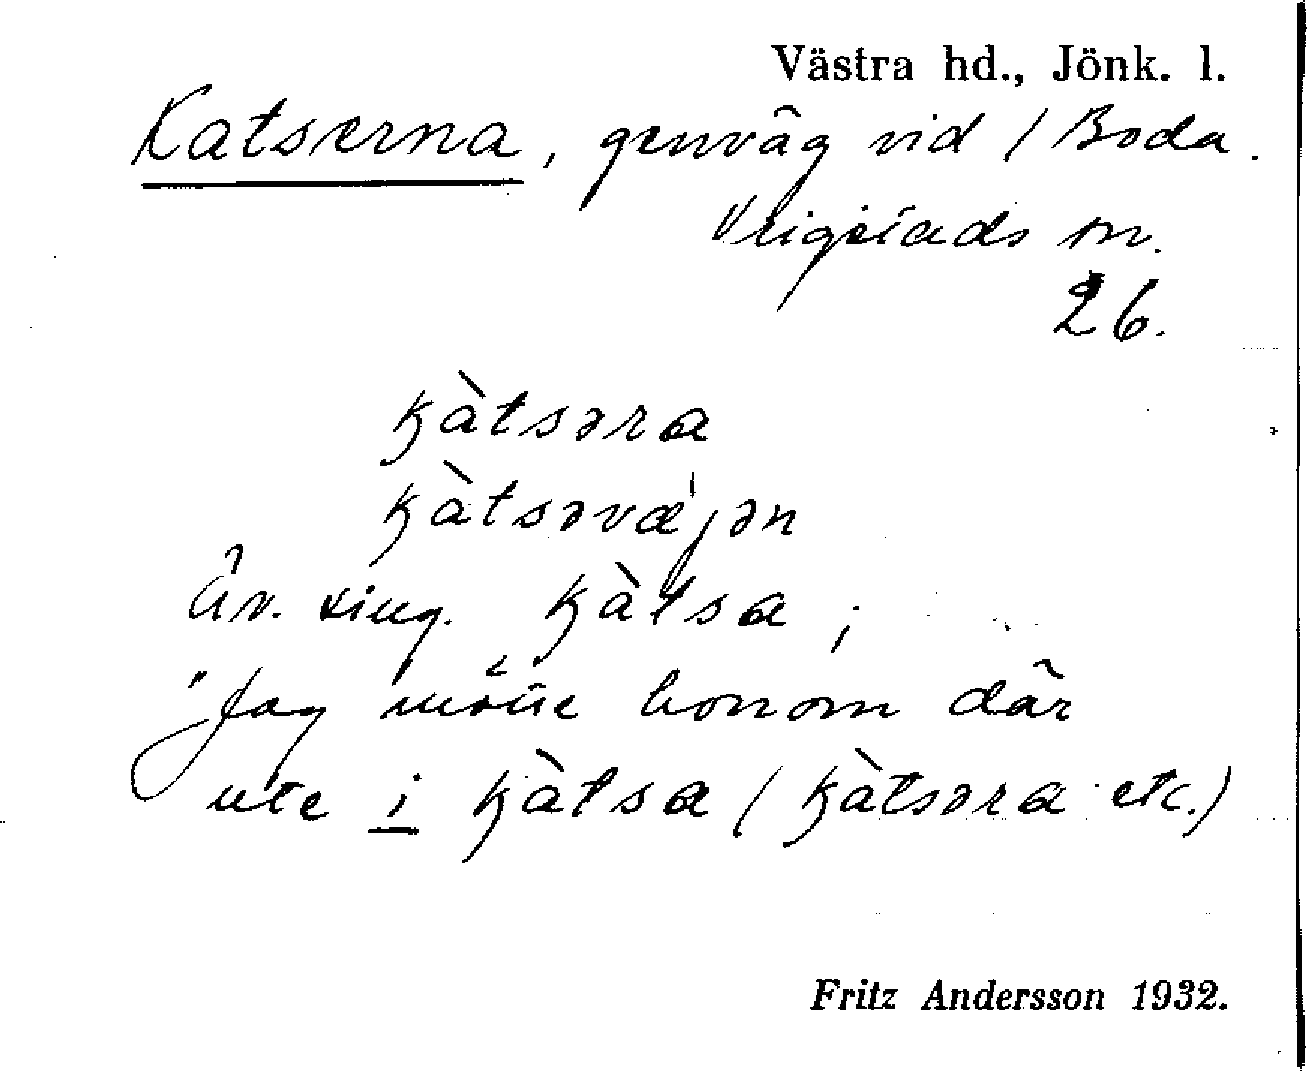 Västra hd., Jönk. l.
Katserna, genväg vid / Boda.
Vrigstads sn.
26.
kàtsəra
kàtsəvæ̍jən
Äv. sing. kàtsa ;
"Jag mötte honom där
ute i kàtsa (kàtsəra etc.)
Fritz Andersson 1932.